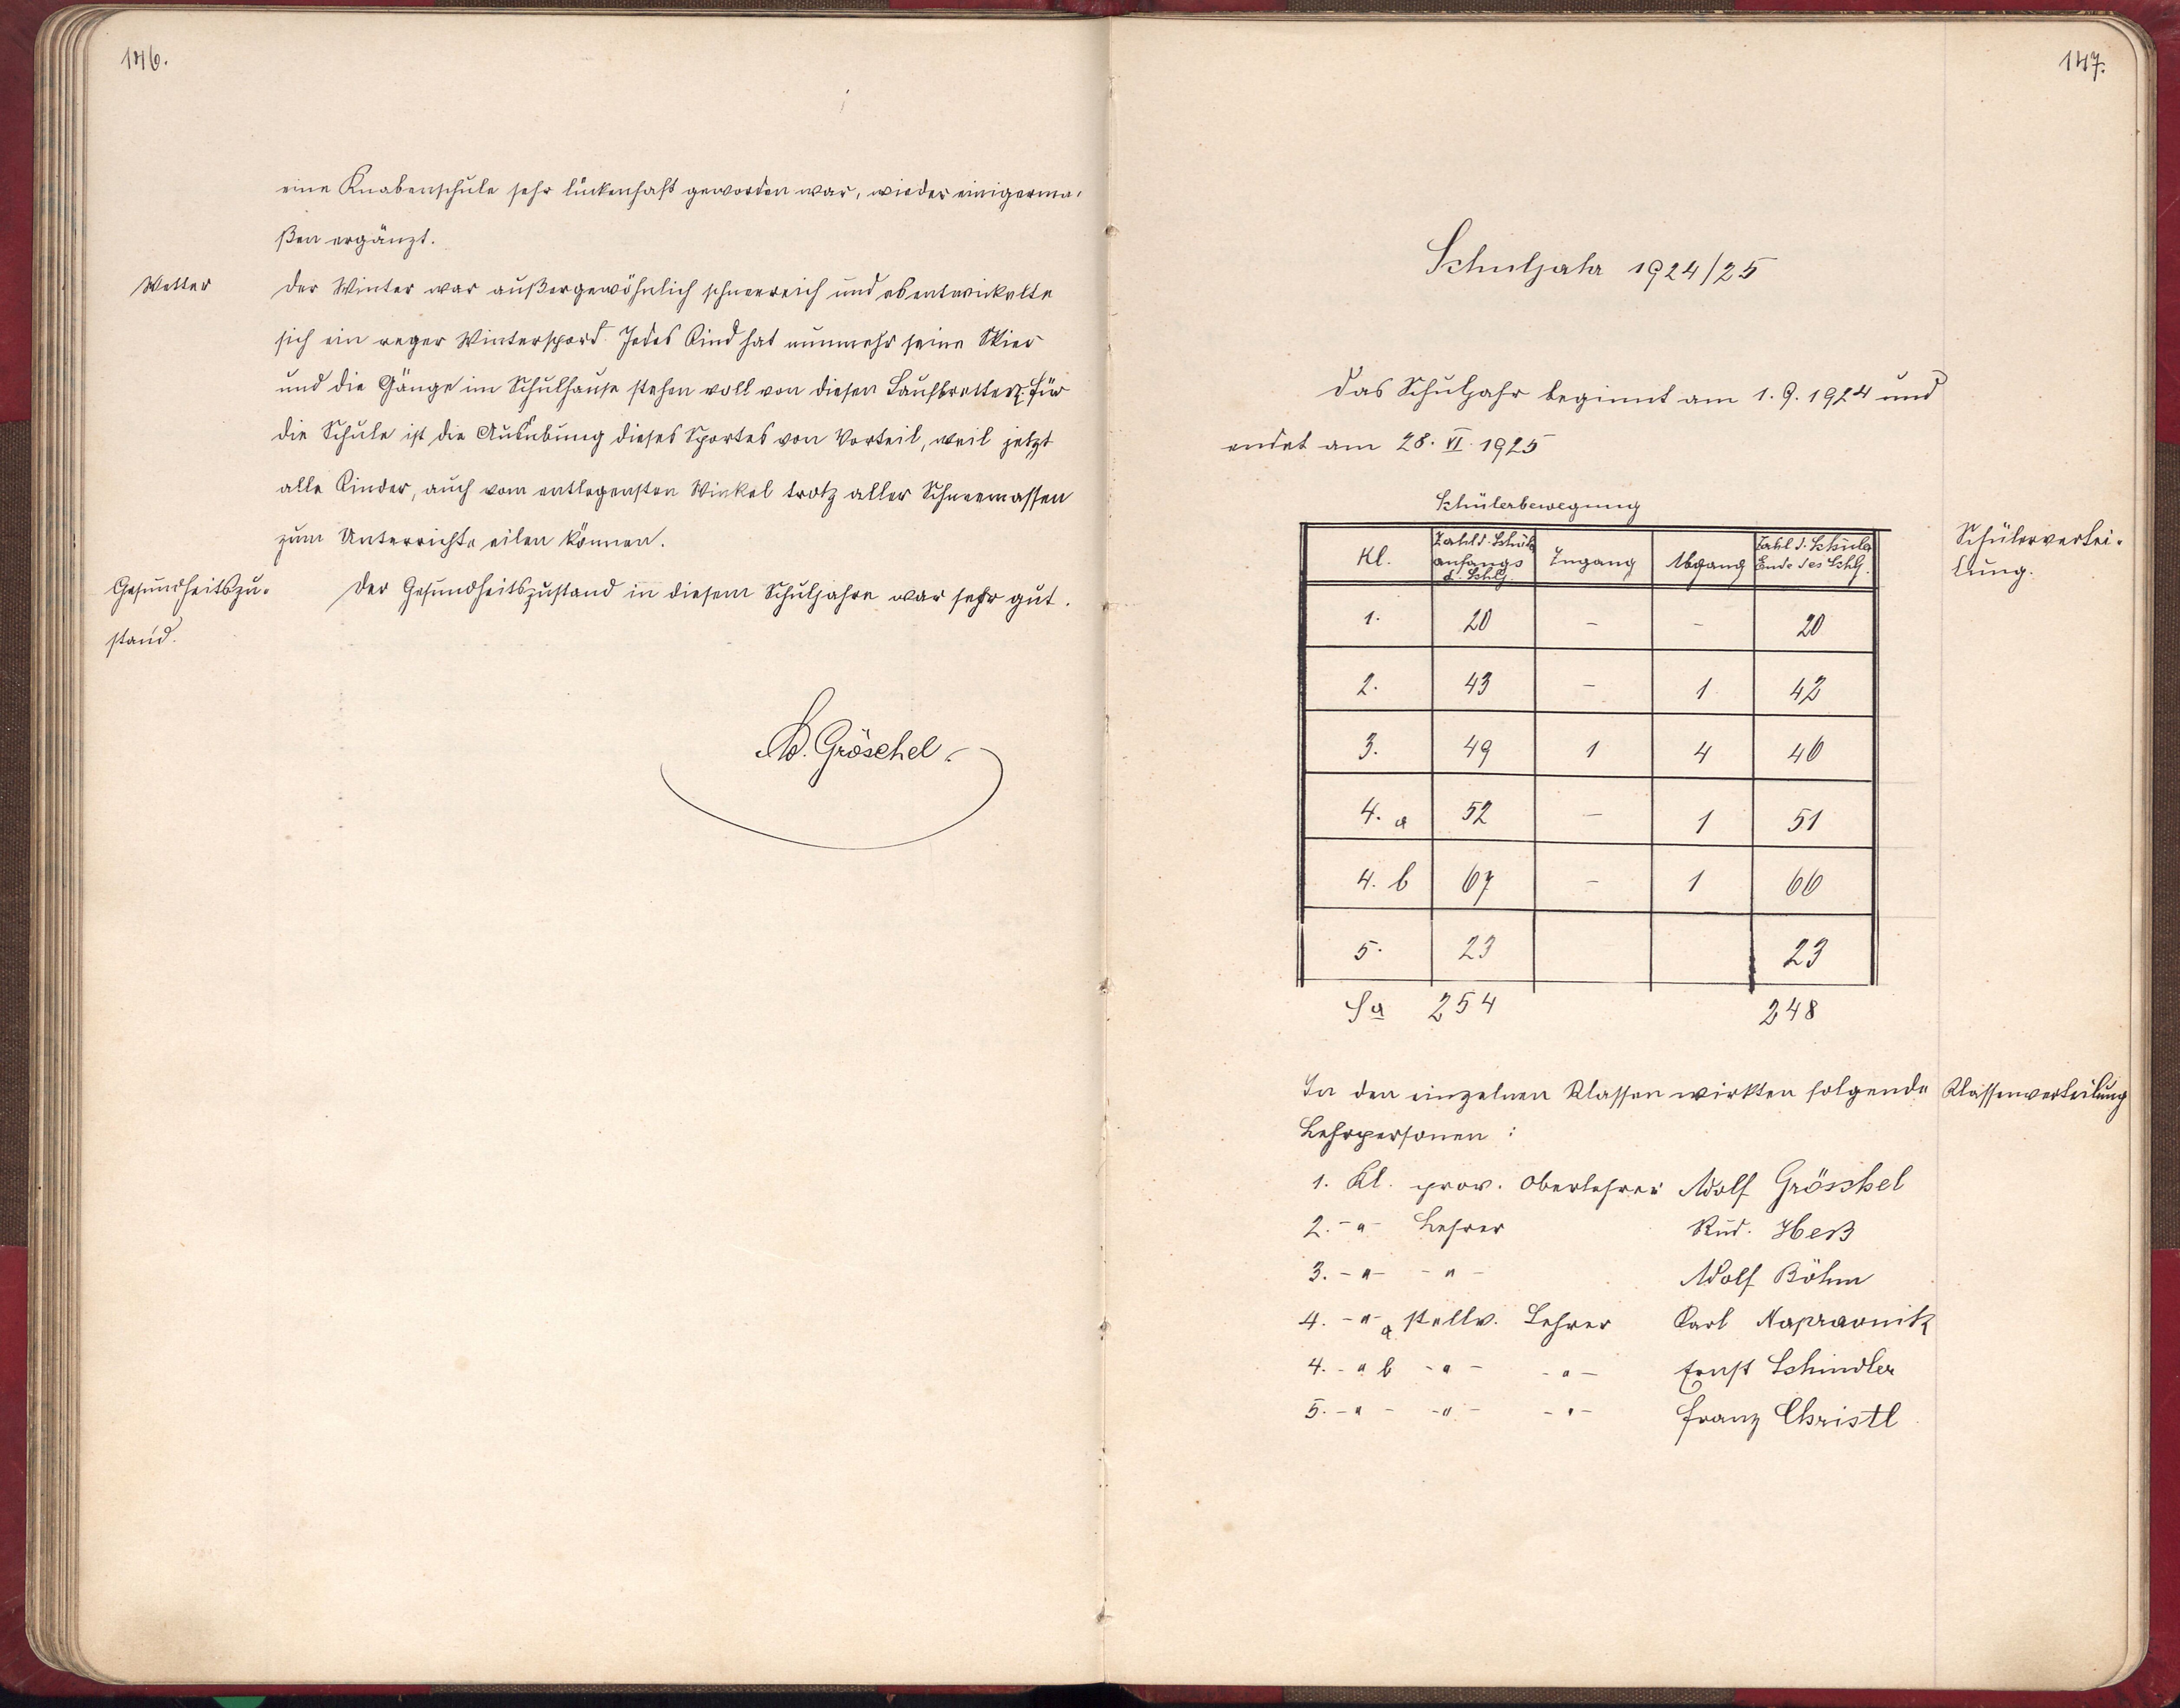 146.
eine Knabenschule sehr lückenhaft geworden war, wieder einigerma-
ßen ergänzt.
Wetter
Der Winter war außergewöhnlich schneereich und es entwickelte
sich ein reger Winterspord. Jedes Kind hat nunmehr seine Skier
und die Gänge im Schulhause stehen voll von diesen Laufbrettern. Für
die Schule ist die Ausübung dieses Sportes von Vorteil, weil jetzt
alle Kinder, auch vom entlegensten Winkel trotz aller Schneemassen
zum Unterrichte eilen können.
Gesundheitszu-
stand.
Der Gesundheitszustand in diesem Schuljahre war sehr gut.
Ad. Gröschel
147.
Schuljahr 1924/25
Das Schuljahr beginnt am 1. 9. 1924 und
endet am 28. VI. 1925
Schülerbewegung
Schülervertei-
lung.
Kl. Zahl d. Schül. anfangs d. Schlj. Zugang Abgang Zahl d. Schüler Ende des Schlj.
1. 20 - - 20
2. 43 - 1 42
3. 49 1 4 46
4. a 52 - 1 51
4. b 67 - 1 66
5. 23 23
Sa 254 248
In den einzelnen Klassen wirkten folgende
Klassenverteilung
Lehrpersonen :
1. Kl. prov. Oberlehrer Adolf Gröschel
2. -"- Lehrer Rud. Heß
3. -"- -"- Adolf Böhm
4. -"- a stellv. Lehrer Karl Napravnik
4. -" b -"- -"- Ernst Schindler
5. -"- -"- -"- Franz Christl